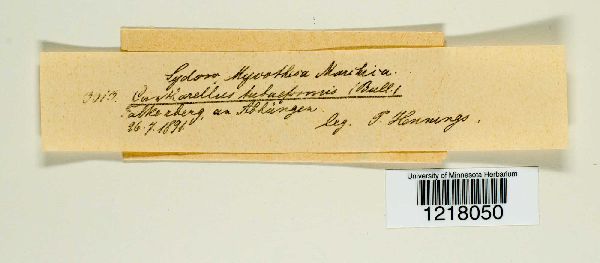 Sydow Mycotheca Marchica.
Cantharellus tubaeformis (Bull.)
Falkenberg, an Abhängen
26.7.1890
leg. P. Hennings.
University of Minnesota Herbarium
1218050